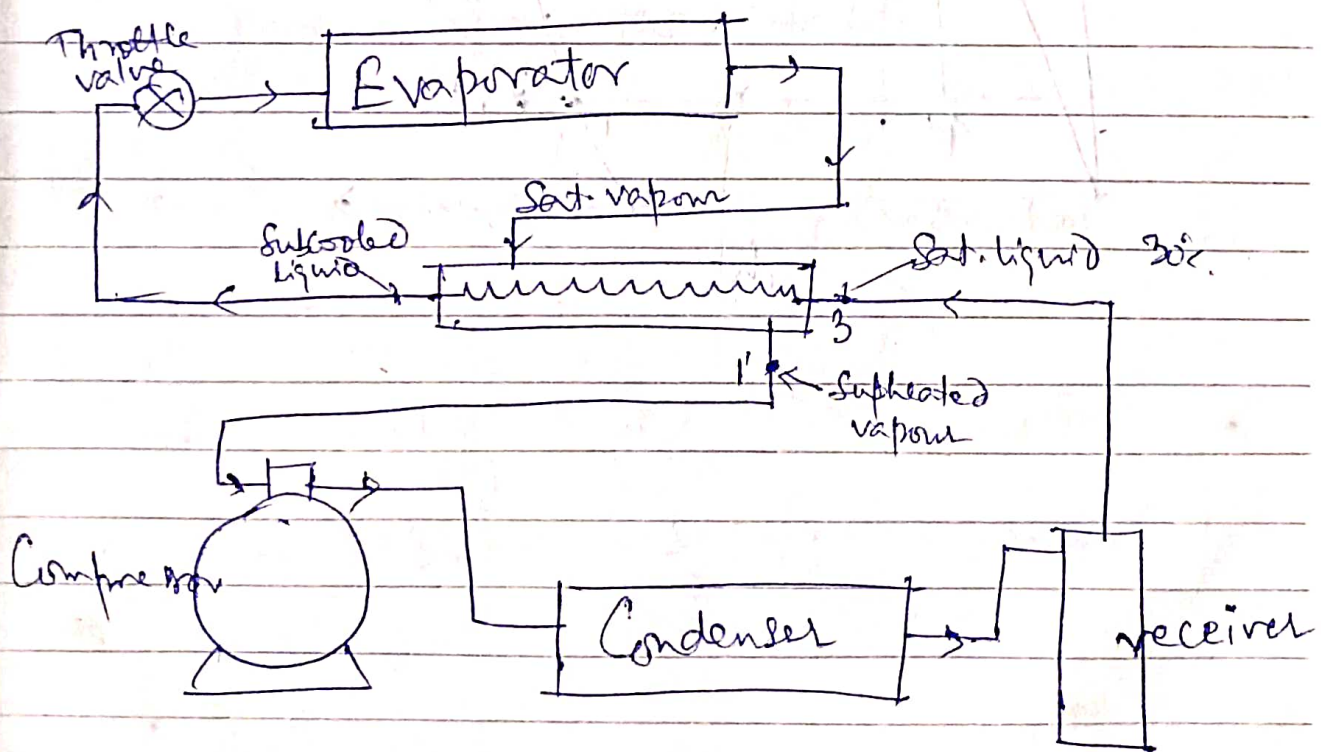 Throttle
valve
Evaporator
Sat. vapour
Subcooled
Liquid
Sat. liquid 30°c.
3
1'
Supheated
vapour
Compressor
Condenser
receiver